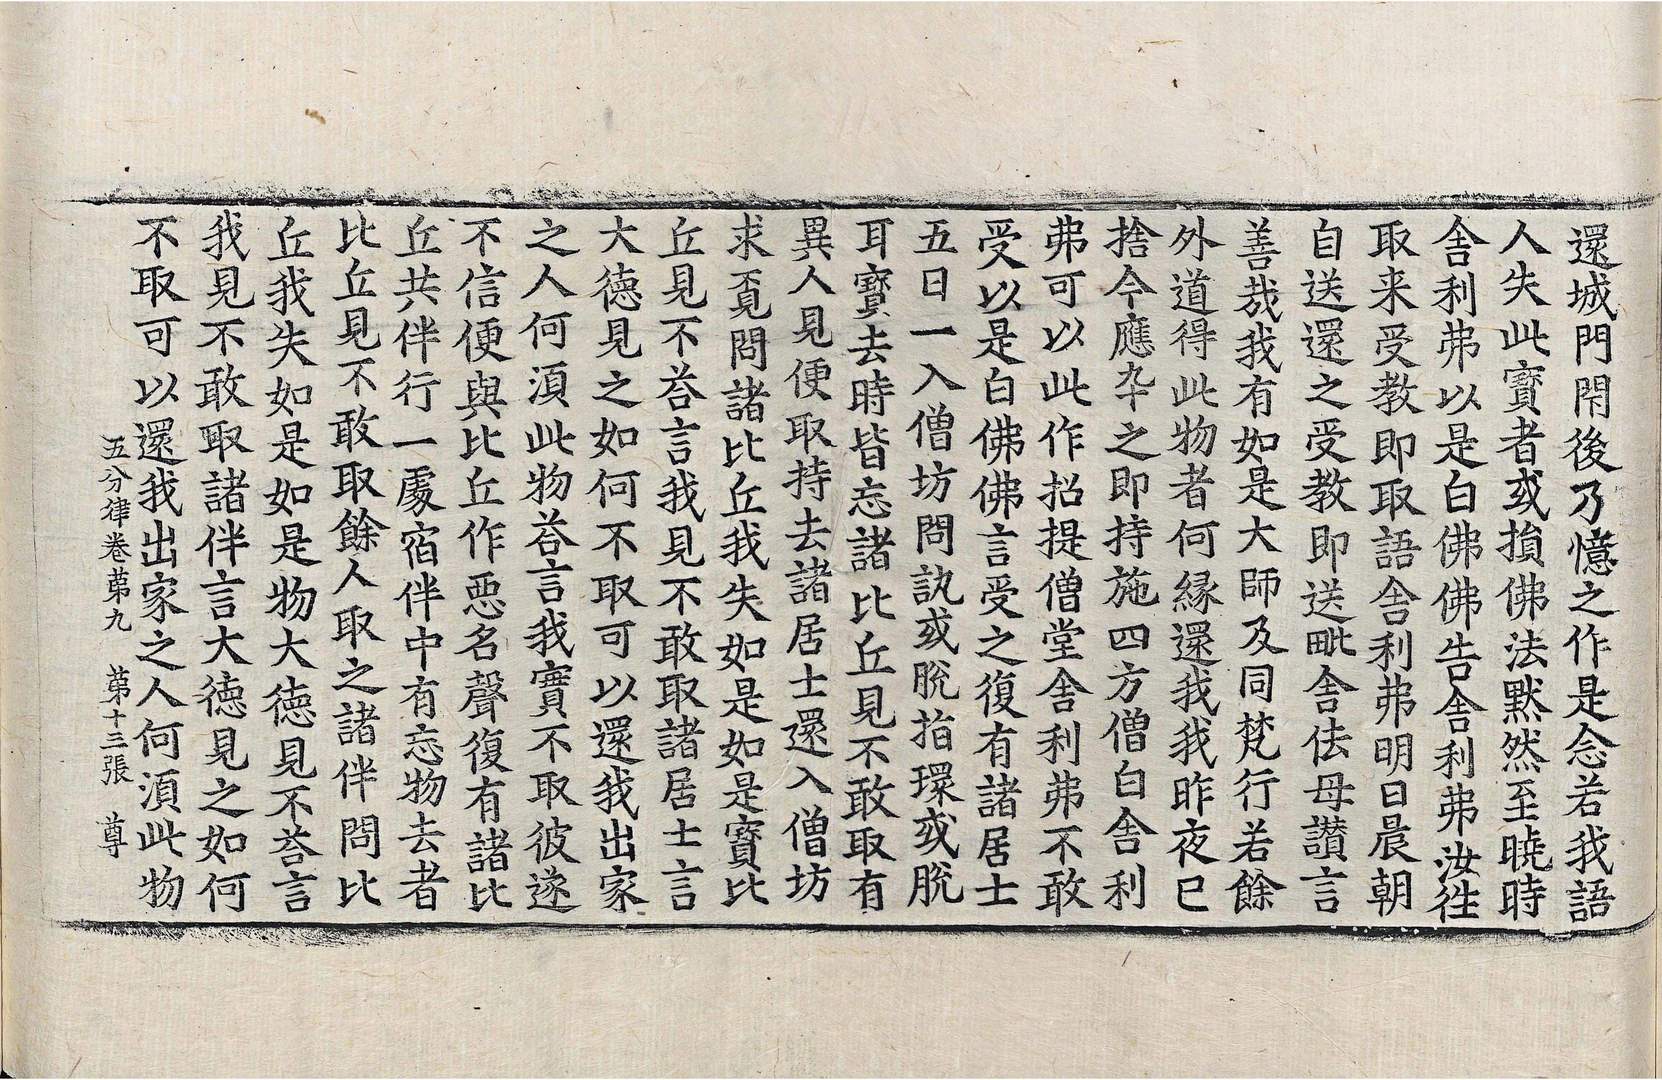 還城門閇後乃憶之作是念若我語
人失此寳者或損佛法默然至曉時
舎利弗以是白佛佛告舎利弗汝徃
取来受教即取語舎利弗明日晨朝
自送還之受教即送毗舎佉母讃言
善哉我有如是大師及同梵行若餘
外道得此物者何縁還我我昨夜已
捨今應卆之即持施四方僧白舎利
弗可以此作招提僧堂舎利弗不敢
受以是白佛佛言受之復有諸居士
五日一入僧坊問訊或脫指環或脫
耳寳去時皆忘諸比丘見不敢取有
異人見便取持去諸居士還入僧坊
求覔問諸比丘我失如是如是寳比
丘見不荅言我見不敢取諸居士言
大德見之如何不取可以還我出家
之人何湏此物荅言我實不取彼遂
不信便與比丘作惡名聲復有諸比
丘共伴行一處宿伴中有忘物去者
比丘見不敢取餘人取之諸伴問比
丘我失如是如是物大德見不荅言
我見不敢取諸伴言大德見之如何
不取可以還我出家之人何湏此物
五分律卷苐九 苐十三張 尊